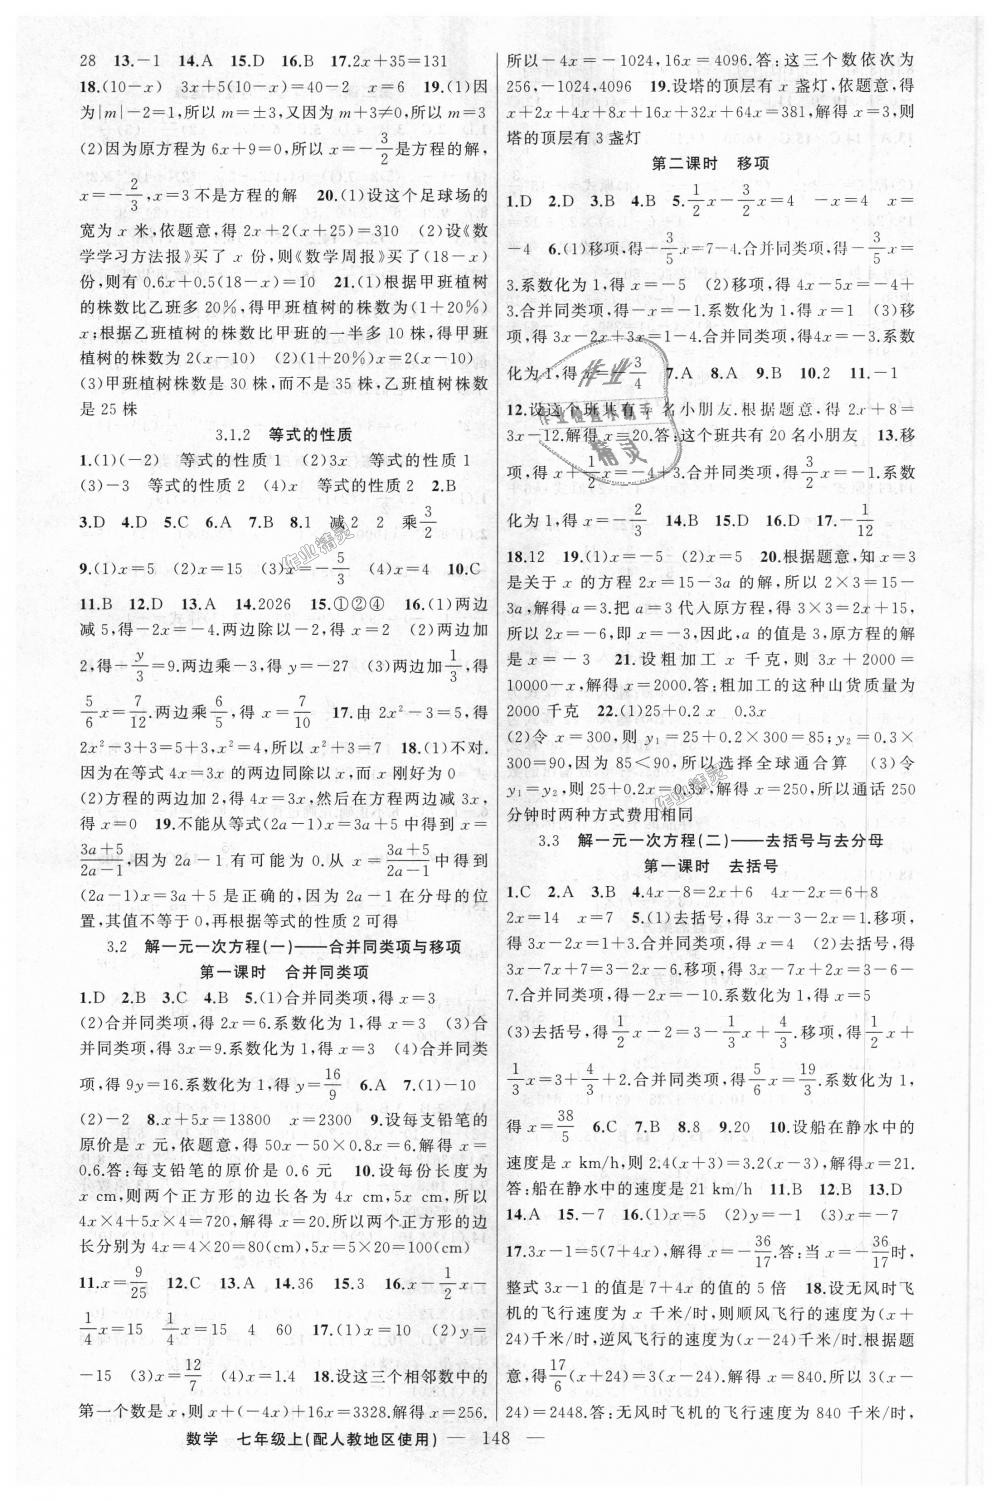 28 13.-1 14.A 15.D 16.B 17.2x+35=131
18.(10-x) 3x+5(10-x)=40-2 x=6 19.(1)因
为|m|-2=1,所以 m=±3,又因为 m+3≠0,所以 m=3
(2)因为原方程为 6x+9=0,所以 x=-3/2是方程的解,
x=-2/3,x=3 不是方程的解 20.(1)设这个足球场的
宽为 x 米,依题意,得 2x+2(x+25)=310 (2)设《数
学学习方法报》买了 x 份,则《数学周报》买了(18-x)
份,则有 0.6x+0.5(18-x)=10 21.(1)根据甲班植树
的株数比乙班多 20%,得甲班植树的株数为(1+20%)
x;根据乙班植树的株数比甲班的一半多 10 株,得甲班
植树的株数为 2(x-10) (2)(1+20%)x=2(x-10)
(3)甲班植树株数是 30 株,而不是 35 株,乙班植树株数
是 25 株
3.1.2 等式的性质
1.(1)(-2) 等式的性质 1 (2)3x 等式的性质 1
(3)-3 等式的性质 2 (4)x 等式的性质 2 2.B
3.D 4.D 5.C 6.A 7.B 8.1 减 2 2 乘3/2
9.(1)x=5 (2)x=15 (3)x=-5/3 (4)x=4 10.C
11.B 12.D 13.A 14.2026 15.①②④ 16.(1)两边
减 5,得-2x=-4.两边除以-2,得 x=2 (2)两边加
2,得-y/3=9.两边乘-3,得 y=-27 (3)两边加1/3,得
5/6x=7/12.两边乘6/5,得 x=7/10 17.由 2x²-3=5,得
2x²-3+3=5+3,x²=4,所以 x²+3=7 18.(1)不对.
因为在等式 4x=3x 的两边同除以 x,而 x 刚好为 0
(2)方程的两边加 2,得 4x=3x,然后在方程两边减 3x,
得 x=0 19.不能从等式(2a-1)x=3a+5 中得到 x=
3a+5/2a-1,因为 2a-1 有可能为 0.从 x=3a+5/2a-1中得到
(2a-1)x=3a+5 是正确的,因为 2a-1 在分母的位
置,其值不等于 0,再根据等式的性质 2 可得
3.2 解一元一次方程(一)——合并同类项与移项
第一课时 合并同类项
1.D 2.B 3.C 4.B 5.(1)合并同类项,得 x=3
(2)合并同类项,得 2x=6.系数化为 1,得 x=3 (3)合
并同类项,得 3x=9.系数化为 1,得 x=3 (4)合并同类
项,得 9y=16.系数化为 1,得 y=16/9 6.A 7.(1)-10
(2)-2 8.x+5x=13800 x=2300 9.设每支铅笔的
原价是 x 元,依题意,得 50x-50×0.8x=6.解得 x=
0.6.答:每支铅笔的原价是 0.6 元 10.设每份长度为
x cm,则两个正方形的边长各为 4x cm,5x cm,所以
4x×4+5x×4=720,解得 x=20.所以两个正方形的边
长分别为 4x=4×20=80(cm),5x=5×20=100(cm)
11.x=9/25 12.C 13.A 14.36 15.3 16.x-1/2x-
1/4x=15 1/4x=15 4 60 17.(1)x=10 (2)y=
-15 (3)x=12/7 (4)x=1.4 18.设这三个相邻数中的
第一个数是 x,则 x+(-4x)+16x=3328.解得 x=256.
所以-4x=-1024,16x=4096.答:这三个数依次为
256,-1024,4096 19.设塔的顶层有 x 盏灯,依题意,得
x+2x+4x+8x+16x+32x+64x=381,解得 x=3,则
塔的顶层有 3 盏灯
第二课时 移项
1.D 2.D 3.B 4.B 5.1/2x-3/2x=4 -x=4 x=
-4 6.(1)移项,得-3/5x=7-4.合并同类项,得-3/5x=
3.系数化为 1,得 x=-5 (2)移项,得 4x-5x=-4+
3.合并同类项,得-x=-1.系数化为 1,得 x=1 (3)移
项,得 3x-2x+3x=1-4.合并同类项,得4x=-3.系数
化为 1,得 x=-3/4 7.A 8.A 9.B 10.2 11.-1
12.设这个班共有 x 名小朋友.根据题意,得 2x+8=
3x-12.解得 x=20.答:这个班共有 20 名小朋友 13.移
项,得 x+1/2x=-4+3.合并同类项,得3/2x=-1.系数
化为 1,得 x=-2/3 14.B 15.D 16.D 17.-1/12
18.12 19.(1)x=-5 (2)x=5 20.根据题意,知 x=3
是关于 x 的方程 2x=15-3a 的解,所以 2×3=15-
3a,解得 a=3.把 a=3 代入原方程,得 3×3=2x+15,
所以 2x=-6,即 x=-3,因此,a 的值是 3,原方程的解
是 x=-3 21.设粗加工 x 千克,则 3x+2000=
10000-x,解得 x=2000.答:粗加工的这种山货质量为
2000 千克 22.(1)25+0.2x 0.3x
(2)令 x=300,则 y₁=25+0.2×300=85;y₂=0.3×
×300=90,因为 85<90,所以选择全球通合算 (3)令
y₁=y₂,则 25+0.2x=0.3x,解得 x=250,所以通话 250
分钟时两种方式费用相同
3.3 解一元一次方程(二)——去括号与去分母
第一课时 去括号
1.C 2.A 3.B 4.4x-8=2x+6 4x-2x=6+8
2x=14 x=7 5.(1)去括号,得 3x-3-2x=1.移项,
得 3x-2x=1+3.合并同类项,得 x=4 (2)去括号,得
3x-7x+7=3-2x-6.移项,得 3x-7x+2x=3-6-
7.合并同类项,得-2x=-10.系数化为 1,得 x=5
(3)去括号,得1/2x-2=3-1/3x+4/3.移项,得1/2x+
1/3x=3+4/3+2.合并同类项,得5/6x=19/3.系数化为 1,
得 x=38/5 6.C 7.B 8.8 9.20 10.设船在静水中的
速度是 x km/h,则 2.4(x+3)=3.2(x-3),解得x=21.
答:船在静水中的速度是 21 km/h 11.B 12.B 13.D
14.A 15.-7 16.(1)x=5 (2)y=-1 (3)x=-7
17.3x-1=5(7+4x),解得 x=-36/17.答:当 x=-36/17时,
整式 3x-1 的值是 7+4x 的值的 5 倍 18.设无风时飞
机的飞行速度为 x 千米/时,则顺风飞行的速度为(x+
24)千米/时,逆风飞行的速度为(x-24)千米/时.根据题
意,得17/6(x+24)=3(x-24).解得 x=840.所以 3(x-
24)=2448.答:无风时飞机的飞行速度为 840 千米/时,
数学 七年级上(配人教地区使用) — 148 —